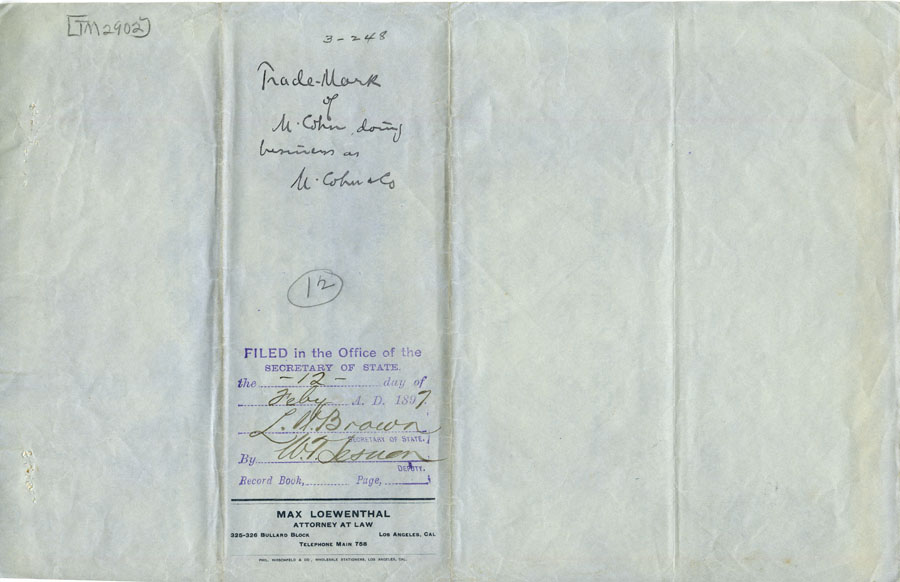 [TM2902]
3-248
Trade-Mark
of
M. Cohn, doing
business as
M. Cohn & Co
12
FILED in the Office of the
SECRETARY OF STATE.
the -12- day of
Feby A. D. 1897
L. H. Brown
SECRETARY OF STATE.
By W. T. Sesnon
DEPUTY.
Record Book, Page,
MAX LOEWENTHAL
ATTORNEY AT LAW
325-326 BULLARD BLOCK LOS ANGELES, CAL
TELEPHONE MAIN 758
PHIL. ROSENFELD & CO., WHOLESALE STATIONERS, LOS ANGELES, CAL.